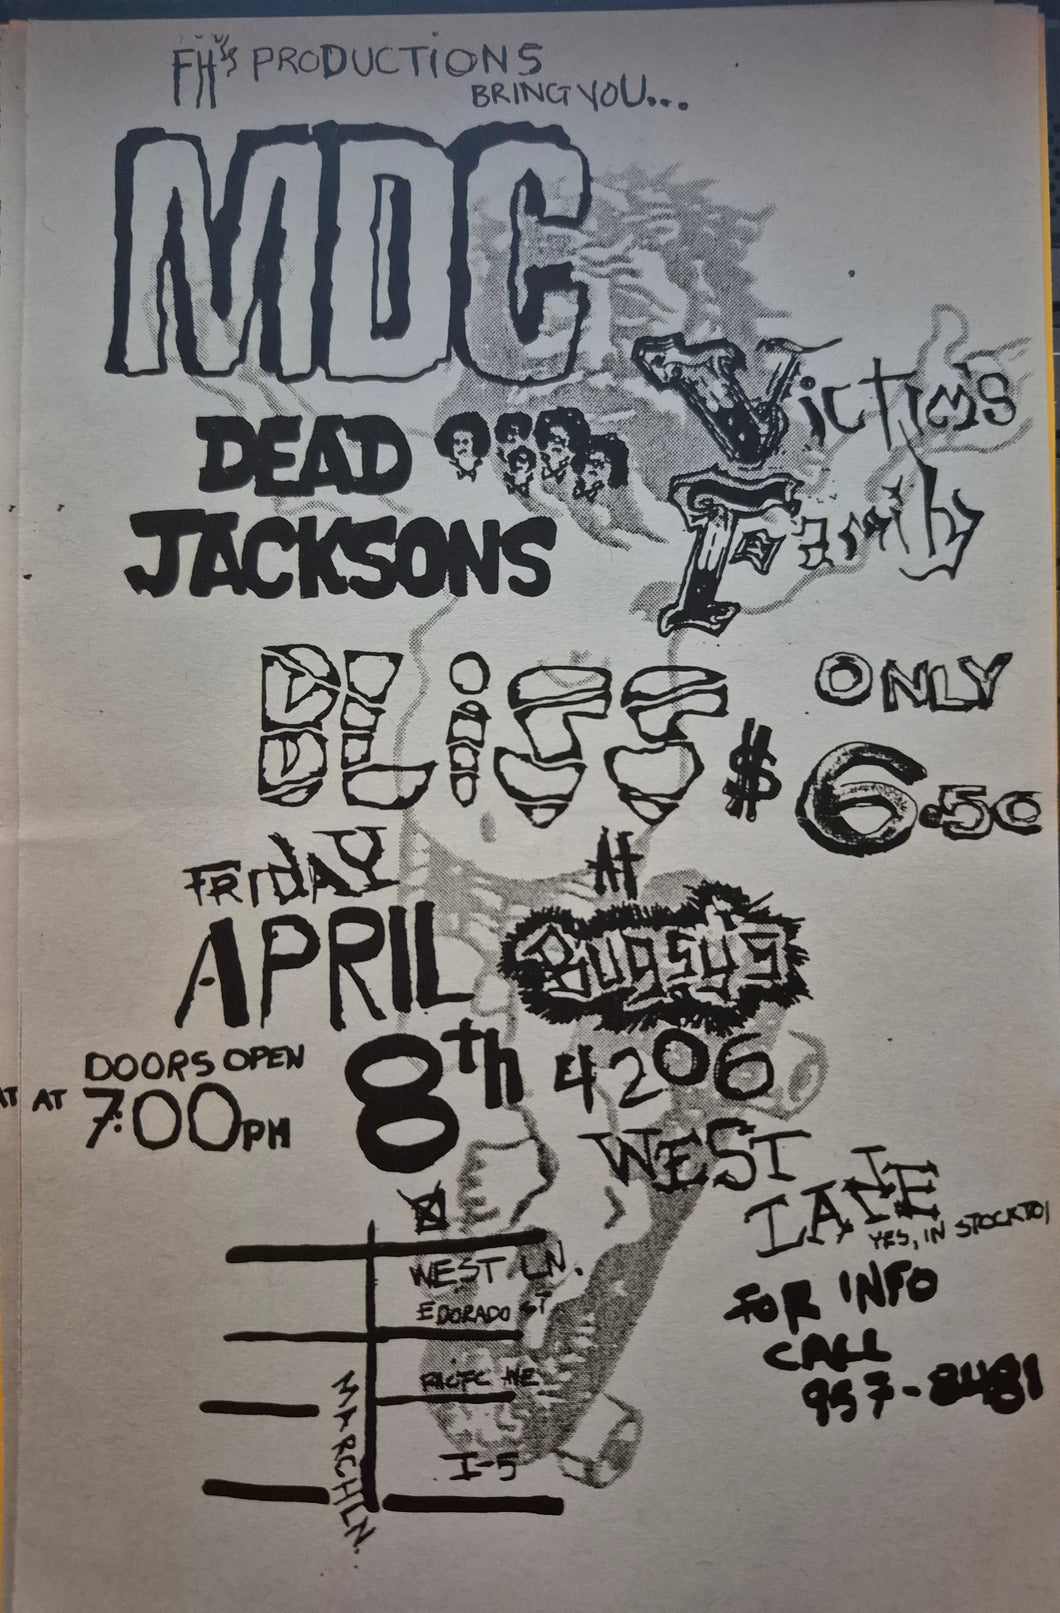 FH's PRODUCTIONS
BRING YOU...
MDC
Victim's
Family
DEAD
JACKSONS
BLiSS
ONLY
$6.50
FRIdAY
APRIL
8th
At
Bugsy's
DOORS OPEN
AT AT 7:00PM
4206
WEST
LANE
YES, IN STOCKTO
FOR INFO
CALL
957-8481
WEST LN.
EDORADO ST
PACIFC AVE
I-5
MARCH LN.